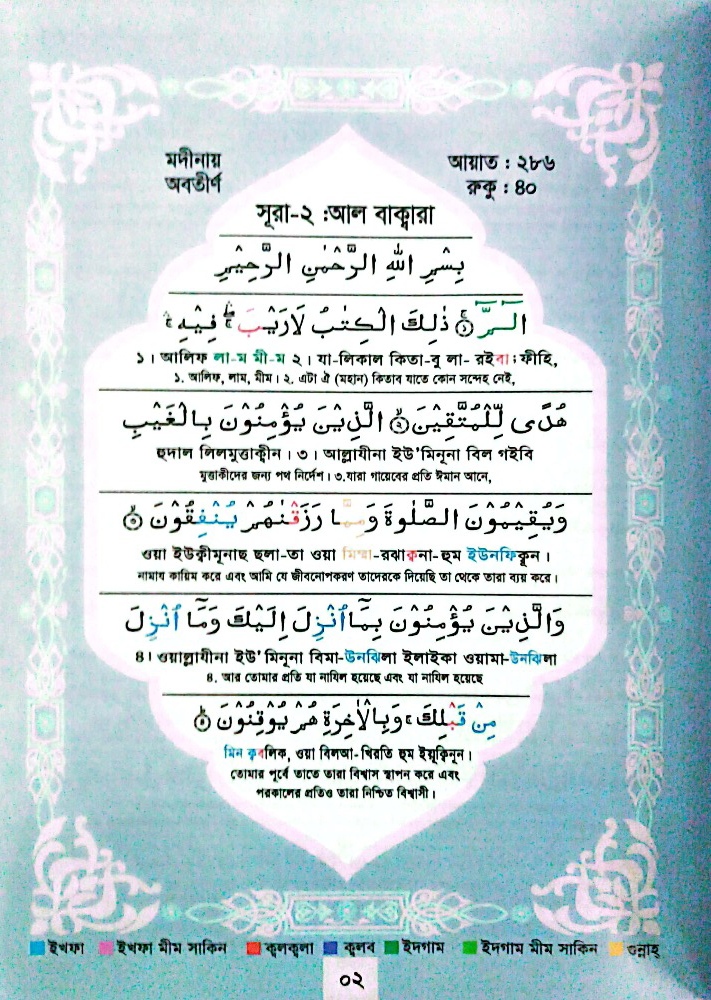 মদীনায় আয়াত : ২৮৬
অবতীর্ণ রুকু : ৪০
সূরা-২ :আল বাক্বারা
بِسْمِ اللهِ الرَّحْمٰنِ الرَّحِيْمِ
الٓـمّٓ ۚ﴿١﴾ ذٰلِكَ الْكِتٰبُ لَا رَيْبَ ۛۚ فِيْهِ ۛۚ
১। আলিফ লা-ম মী-ম ২। যা-লিকাল কিতা-বু লা- রইবা; ফীহি,
১. আলিফ, লাম, মীম। ২. এটা ঐ (মহান) কিতাব যাতে কোন সন্দেহ নেই,
هُدًى لِّلْمُتَّقِيْنَ ۙ﴿٢﴾ الَّذِيْنَ يُؤْمِنُوْنَ بِالْغَيْبِ
হুদাল লিলমুত্তাক্বীন। ৩। আল্লাযীনা ইউ'মিনূনা বিল গইবি
মুত্তাকীদের জন্য পথ নির্দেশ। ৩.যারা গায়েবের প্রতি ঈমান আনে,
وَيُقِيْمُوْنَ الصَّلٰوةَ وَمِمَّا رَزَقْنٰهُمْ يُنْفِقُوْنَ ۙ﴿٣﴾
ওয়া ইউক্বীমূনাছ ছলা-তা ওয়া মিম্মা-রঝাক্বনা-হুম ইউনফিক্বূন।
নামায কায়িম করে এবং আমি যে জীবনোপকরণ তাদেরকে দিয়েছি তা থেকে তারা ব্যয় করে।
وَالَّذِيْنَ يُؤْمِنُوْنَ بِمَآ اُنْزِلَ اِلَيْكَ وَمَآ اُنْزِلَ
৪। ওয়াল্লাযীনা ইউ'মিনূনা বিমা-উনঝিলা ইলাইকা ওয়ামা-উনঝিলা
৪. আর তোমার প্রতি যা নাযিল হয়েছে এবং যা নাযিল হয়েছে
مِنْ قَبْلِكَ ۚ وَبِالْاٰخِرَةِ هُمْ يُوْقِنُوْنَ ﴿٤﴾
মিন ক্ববলিক, ওয়া বিলআ-খিরতি হুম ইয়ূক্বিনূন।
তোমার পূর্বে তাতে তারা বিশ্বাস স্থাপন করে এবং
পরকালের প্রতিও তারা নিশ্চিত বিশ্বাসী।
ইখফা ইখফা মীম সাকিন ক্বলক্বলা ক্বলব ইদগাম ইদগাম মীম সাকিন গুন্নাহ্
০২